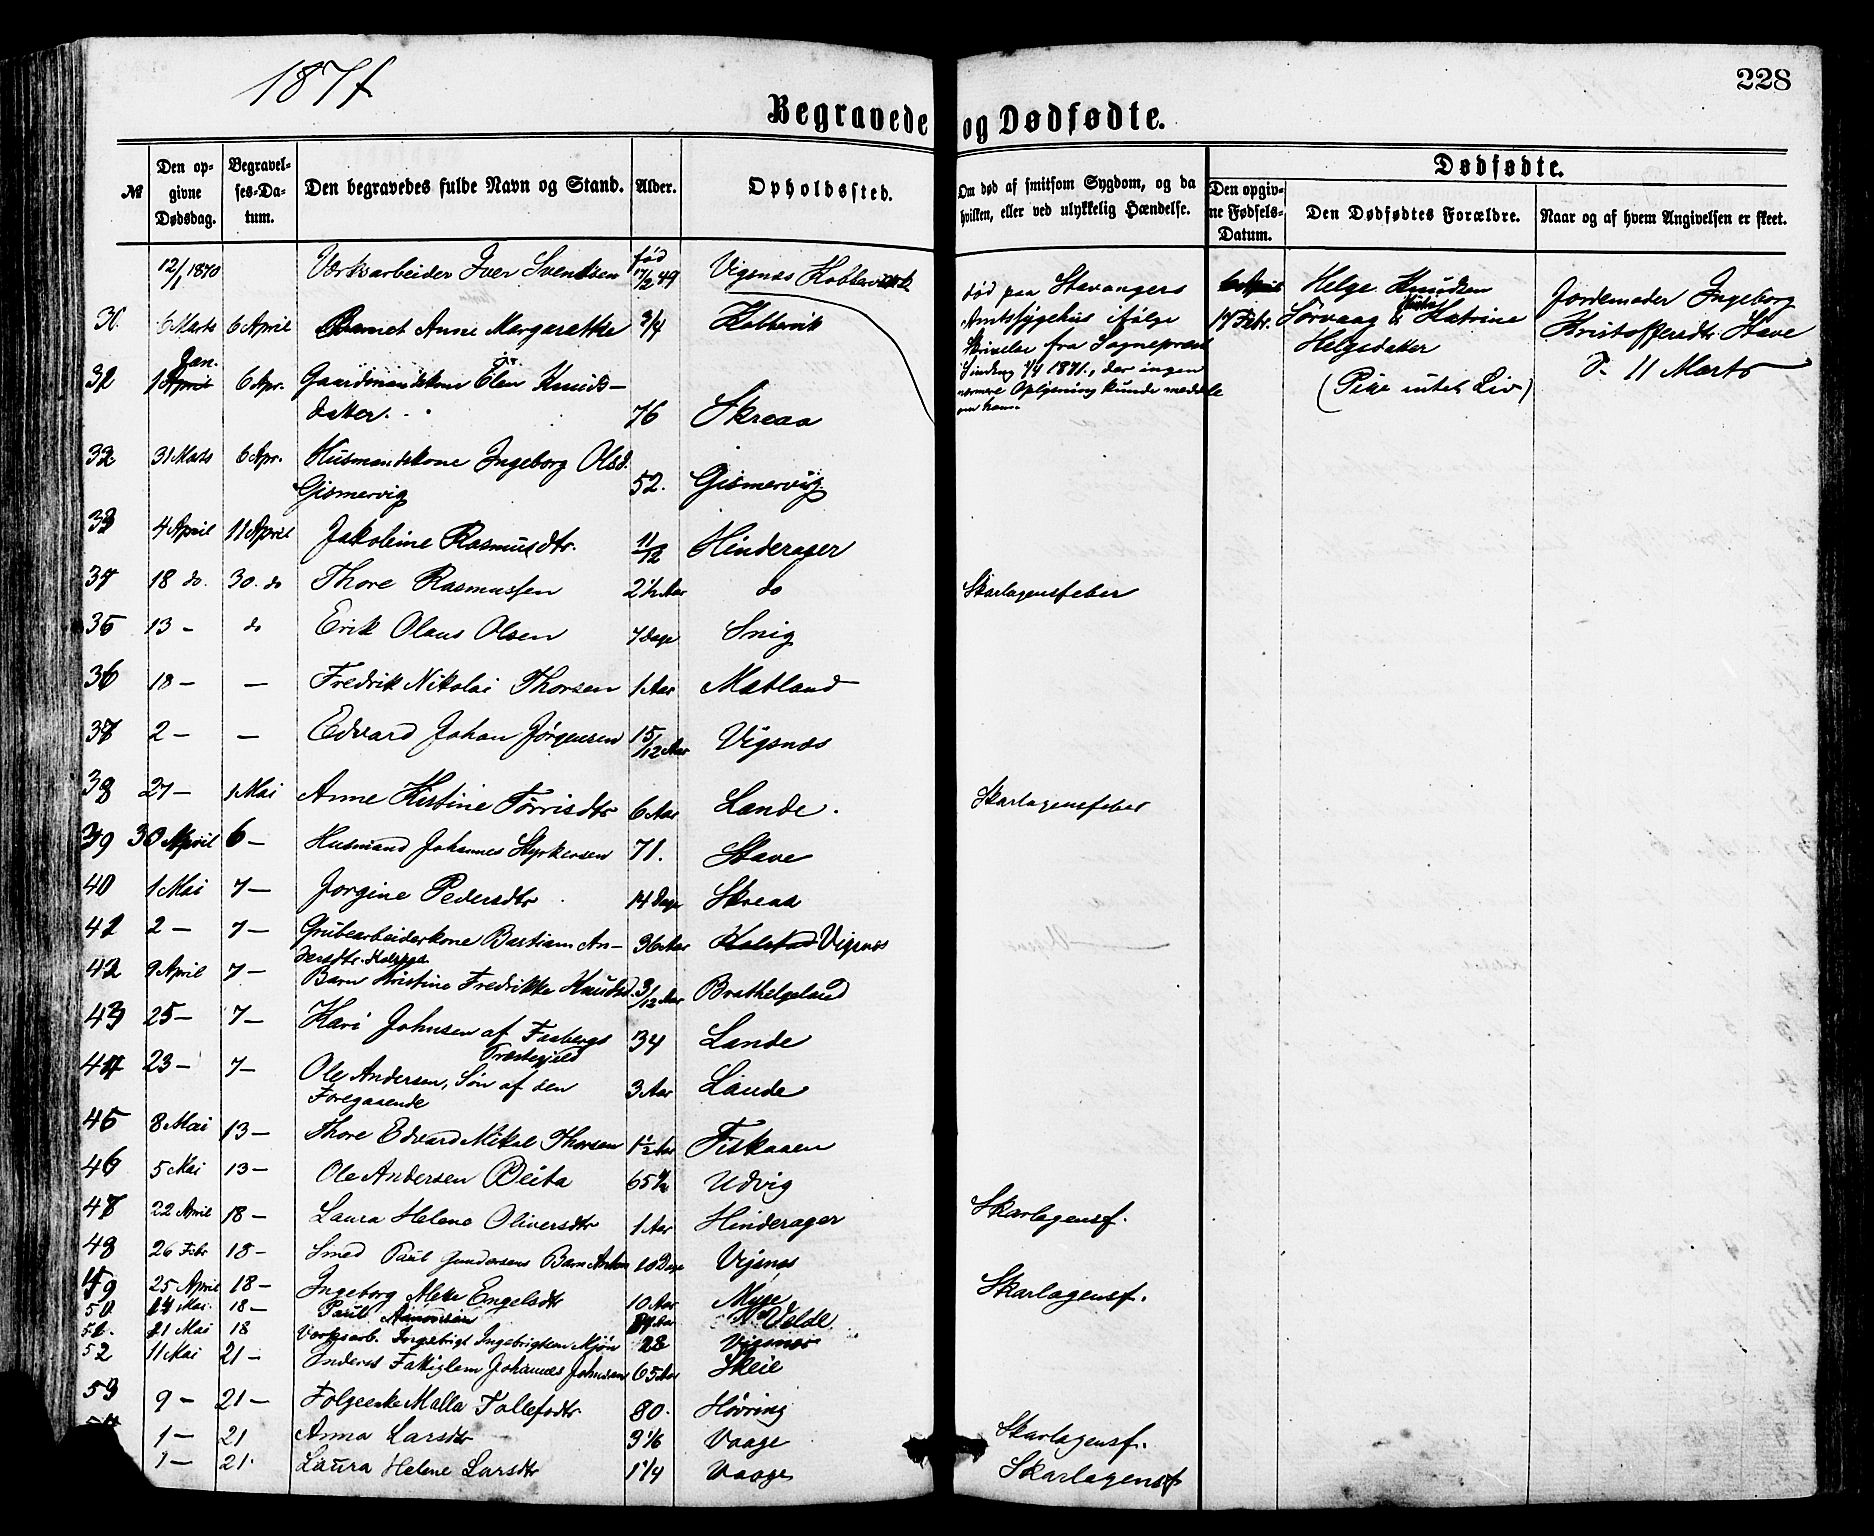 1871
228
Begravede og Dødfødte.
№
Den opgivne Dødsdag.
Begravelses-Datum.
Den begravedes fulde Navn og Stand.
Alder.
Opholdssted.
Om død af smitsom Sygdom, og da hvilken, eller ved ulykkelig Hændelse.
Dødfødte.
Den opgivne Fødsels-Datum.
Den Dødfødtes Forældre.
Naar og af hvem Angivelsen er skeet.
12/1 1870 Værksarbeider Iver Svendsen fød 17/2 49 Vigsnæs Kobberværk
død paa Stavangers
Amtssygehus ifølge
Skrivelse fra Sognepræst
Sinding 4/4 1871, der ingen
nærmere Oplysning kunde meddele
om ham.
6 Marts 6 April Barnet Anne Margarethe 3/4 Kobbervik
14 Febr. Helge Knudsen
Sørvaag & Katrine
Helgesdatter
(Pige uden Liv)
Jordemoder Ingeborg
Kristoffersdtr Stave
D. 11 Marts
Jan.
1 April 6 Apr. Gaardmandskone Elen Knuds-
datter. 76 Skreaa
32 31 Marts 6 Apr. Husmandskone Ingeborg Olsd.
Gismervig 52. Gismervig
33 4 April 11 April Jakobine Rasmusdtr. 11/12 Hinderager
34 18 do. 30. do Thore Rasmussen 2 1/2 Aar do Skarlagensfeber
35 13 - do Erik Olaus Olsen 7 Dage Snig
36 18 - - Fredrik Nikolai Thorsen 1 Aar Matland
37 2 - - Edvard Johan Jørgensen 15/12 Aar Vigsnæs
38 27 - 1 Mai Anne Kistine Tørrisdtr 6 Aar Lande. Skarlagensfeber
39 30 April 6 - Husmand Johannes Styrkersen 71. Stave
40 1 Mai 7 - Jorgine Pedersdtr 14 Dage Skreaa
41 2 - 7 - Grubearbeiderkone Bastiane An-
dersdtr. Kolstad 36 Aar Kolstad Vigsnæs
42 9 April 7 - Barn Kristine Fredrikke Knudsd. 3/12 Aar Brathelgeland
43 25 - 7 - Kari Johnsen af Faabergs
Præstegjeld 34 Lande
44 23 - 7 - Ole Andersen, Søn af den
Foregaaende 3 Aar Lande
45 8 Mai 13 - Thore Edvard Mikal Thorsen 1 1/2 Aar Fiskaaen
46 5 Mai 13 - Ole Andersen Beita 65 1/2 Udvig
47 22 April 18 - Laura Helene Oliversdtr 1 Aar Hinderager Skarlagensf.
48 26 Febr 18 - Smed Paul Gundersens Barn Anton 10 Dage Vigsnæs
49 25 April 18 - Ingeborg Mete Engelsdtr 10 Aar Myge Skarlagensf.
50 14 Mai. 18 - Paul Aanonsen 84 Aar N. Velde
51. 11 Mai 18 Værksarb. Ingebrigt Ingebrigtsen Mjøn 28 Vigsnæs
52 11 Mai 21 - Enderst Fattiglem Johannes Johnsen 65 Aar Skeie
53 9 - 21 - Folgeenke Malla Tollefsdtr 80. Høvring
54 1 - 21 Anna Larsdtr 3 1/6 Vaage Skarlagensf.
1 - 21. Laura Helene Larsdtr 1 1/4 Vaage Skarlagensf